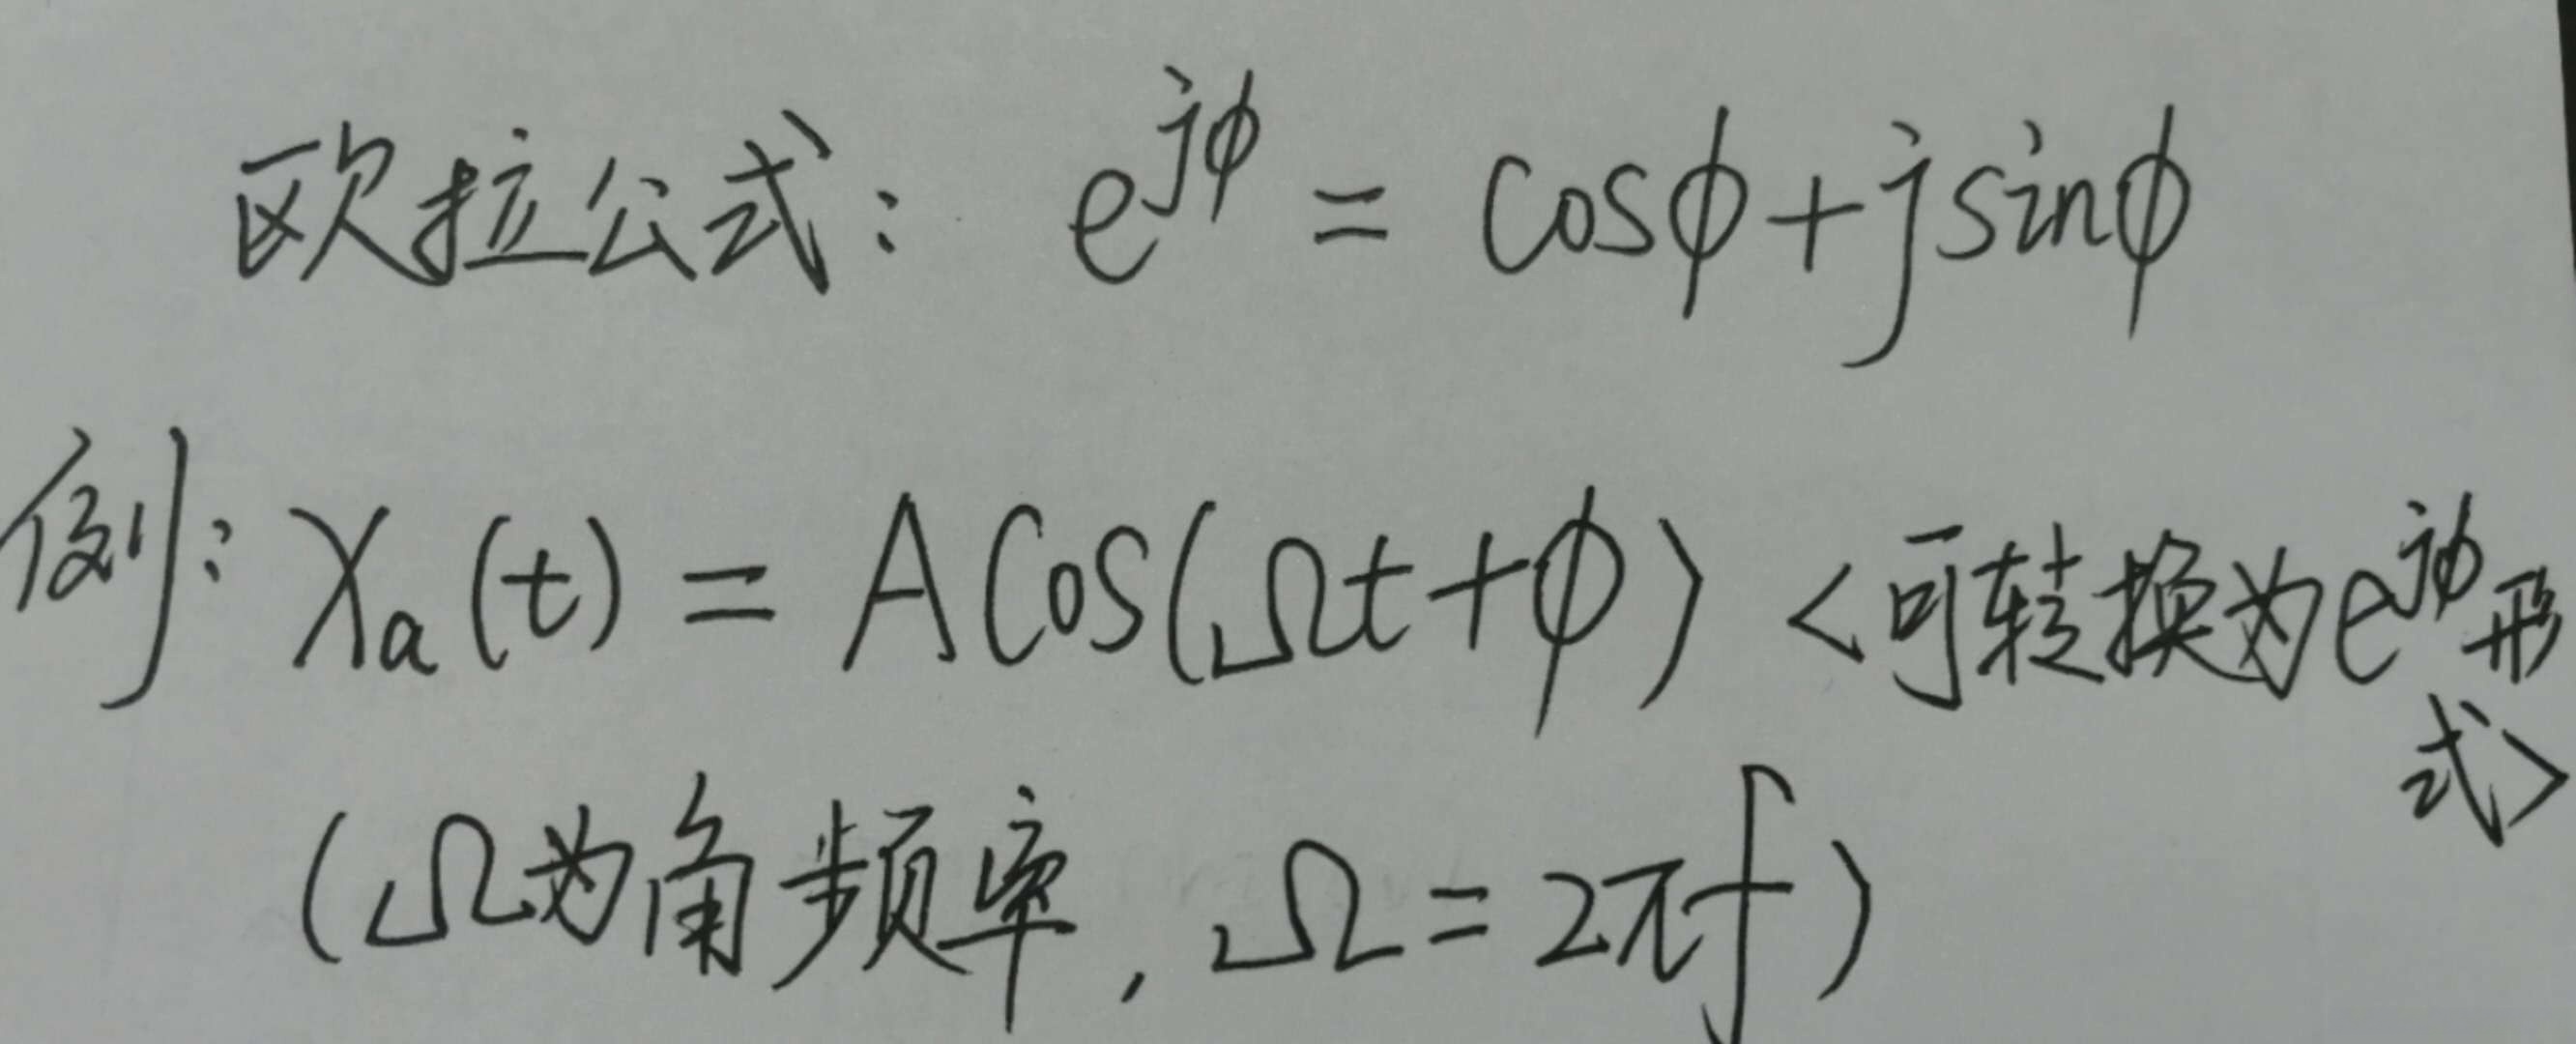 欧拉公式： e^{jϕ} = cosϕ+jsinϕ
例：Xₐ(t) = ACos(Ωt+ϕ) <可转换为e^{jϕ}形
式>
(Ω为角频率, Ω=2πf)